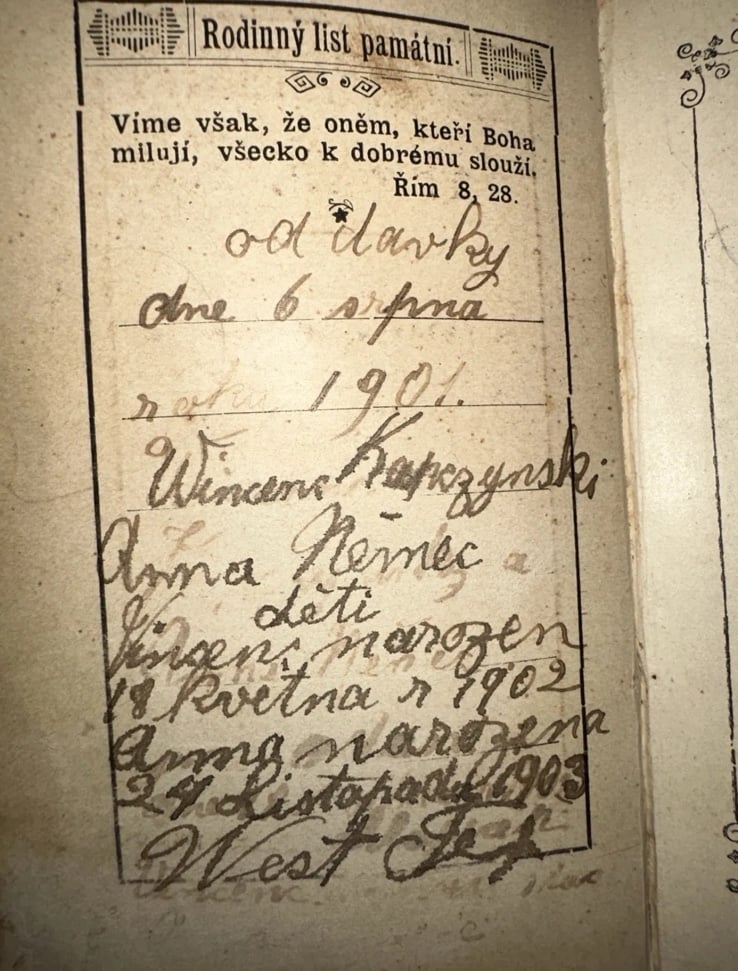 Rodinný list památní.
Víme však, že oněm, kteří Boha
milují, všecko k dobrému slouží.
Řím 8, 28.
od davky
dne 6 srpna
roku 1901.
Wincenc Kapczynski
Anna Němec
děti
Vincenc narozen
18 května r 1902
Anna narozena
Listopadu 1903
West Tex